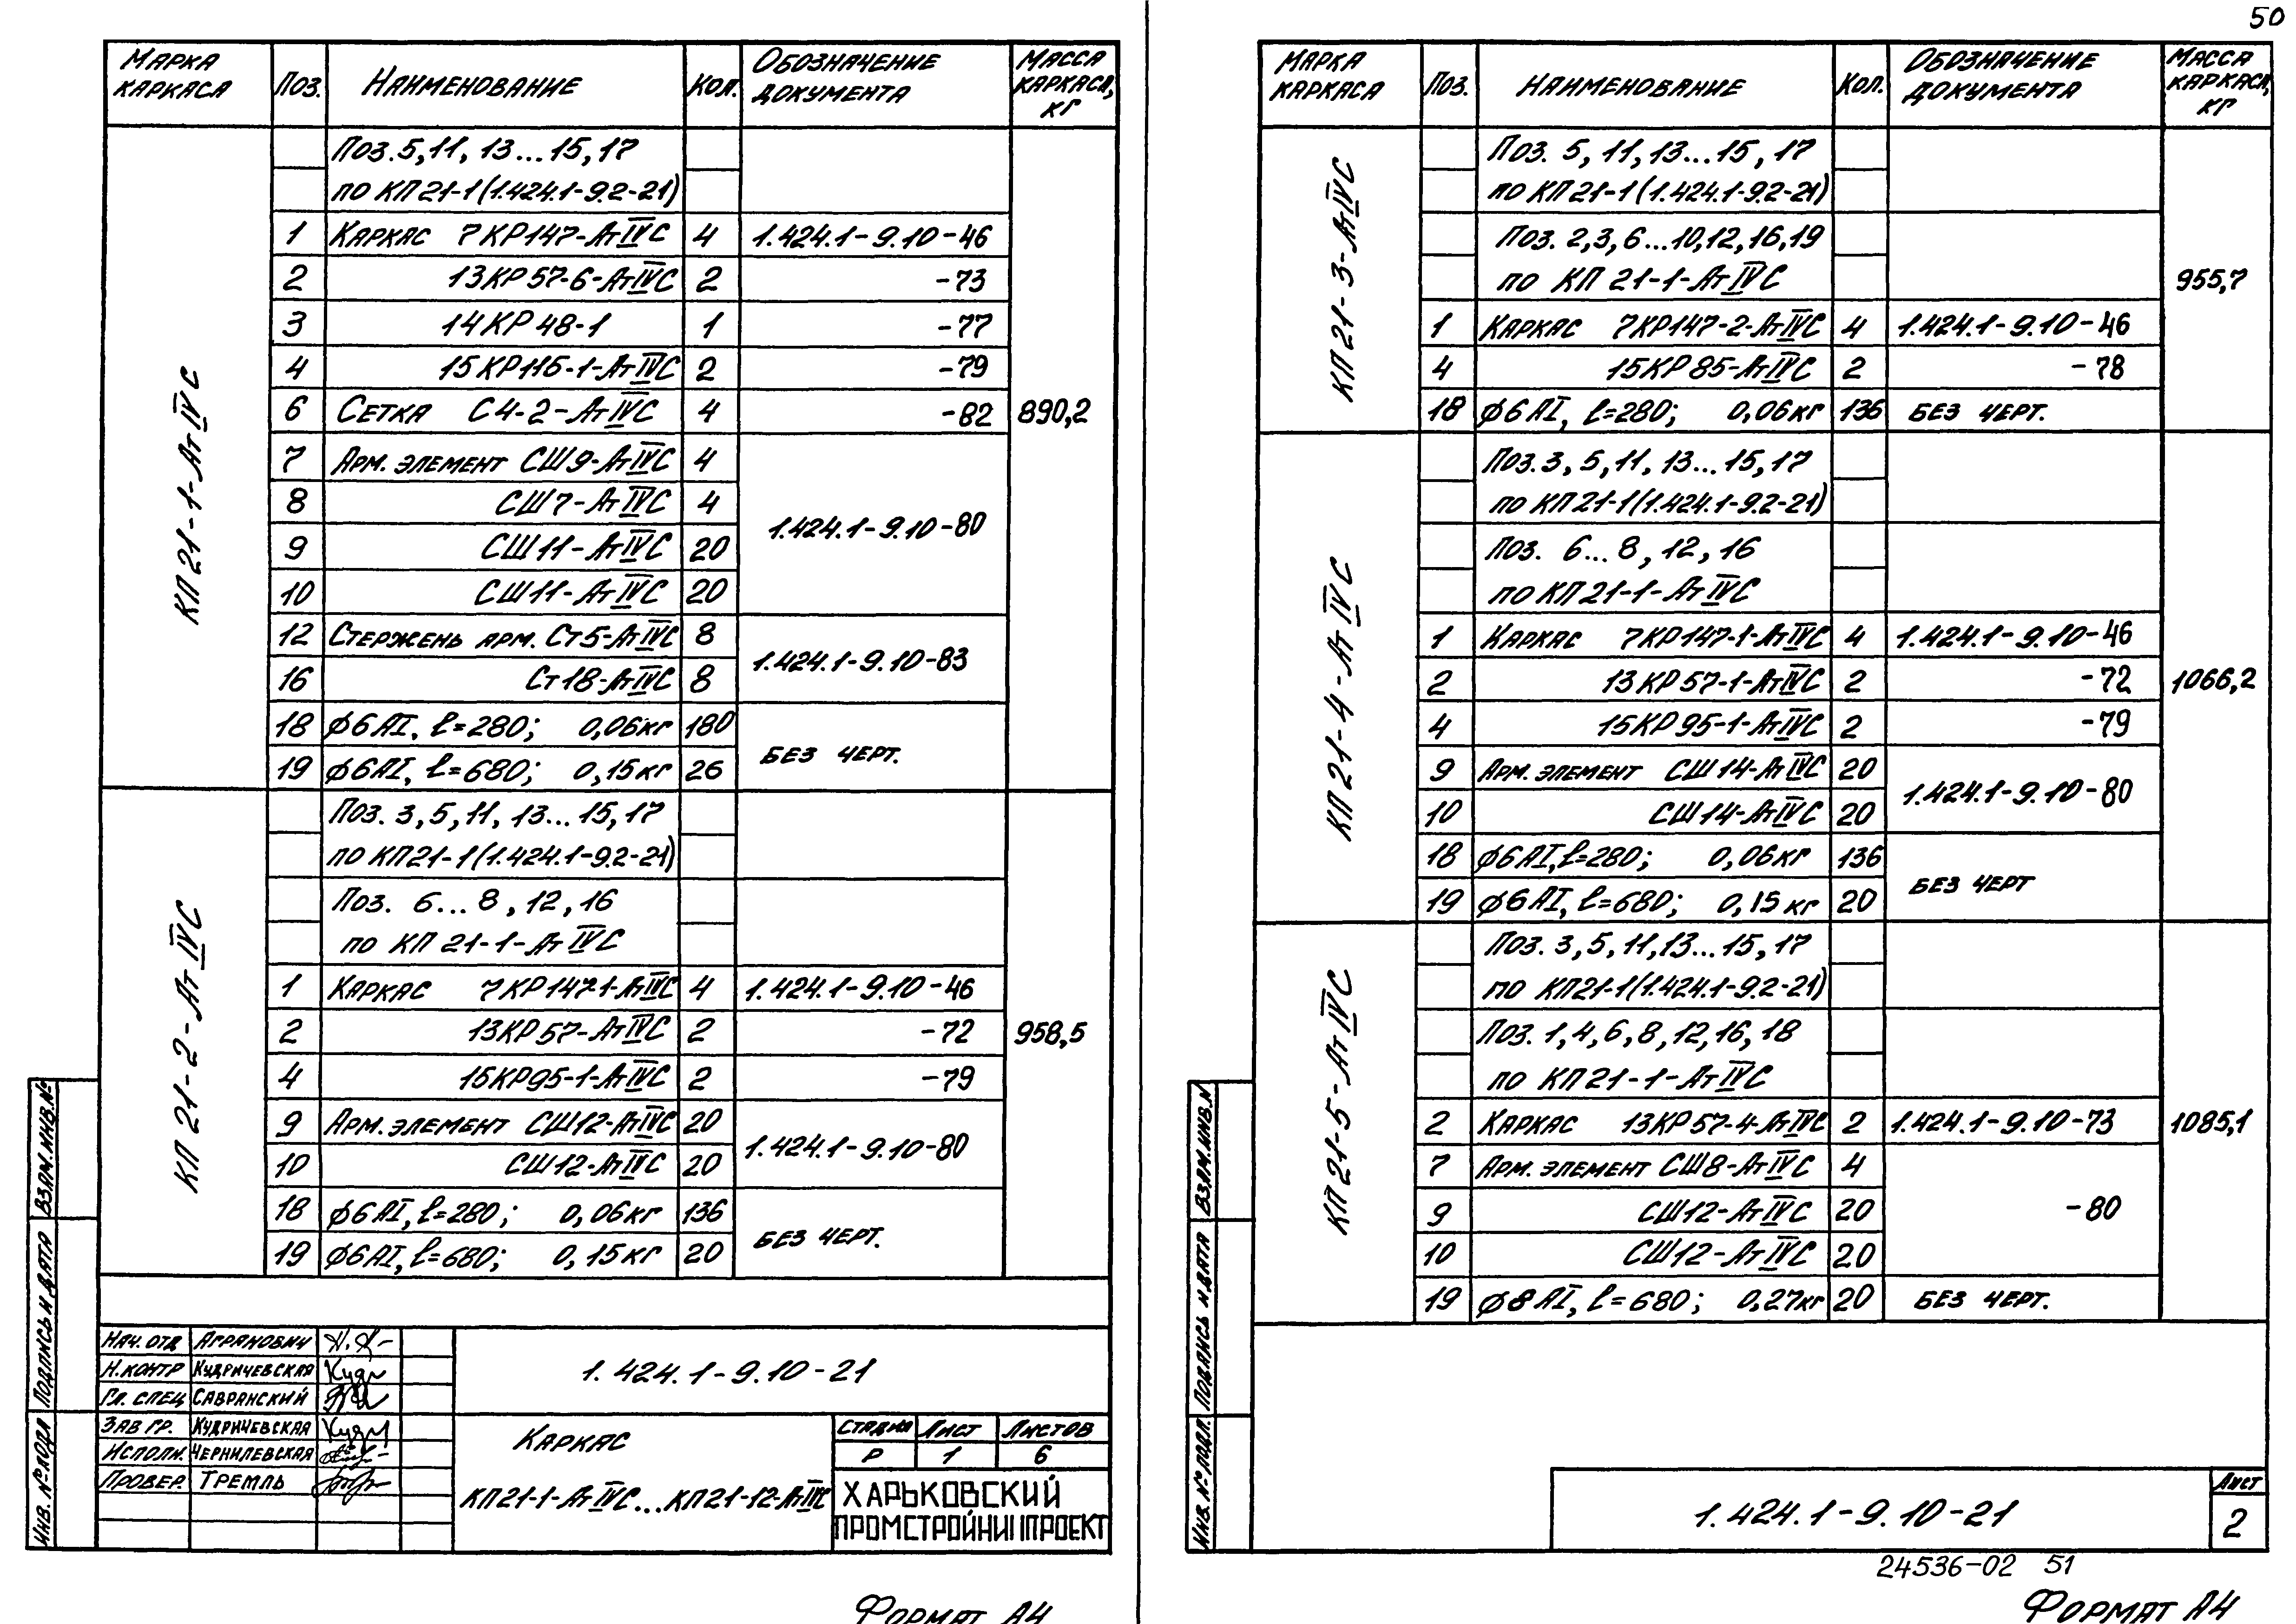 50
МАРКА КАРКАСА ПОЗ. НАИМЕНОВАНИЕ КОЛ. ОБОЗНАЧЕНИЕ ДОКУМЕНТА МАССА КАРКАСА, КГ
КП21-1-АтIVС
ПОЗ. 5, 11, 13...15, 17
ПО КП21-1(1.424.1-9.2-21)
1 КАРКАС 7КР147-АтIVС 4 1.424.1-9.10-46
2 13КР57-6-АтIVС 2 -73
3 14КР48-1 1 -77
4 15КР116-1-АтIVС 2 -79
6 СЕТКА С4-2-АтIVС 4 -82 890,2
7 АРМ. ЭЛЕМЕНТ СШ9-АтIVС 4
8 СШ7-АтIVС 4 1.424.1-9.10-80
9 СШ11-АтIVС 20
10 СШ11-АтIVС 20
12 СТЕРЖЕНЬ АРМ. Ст5-АтIVС 8 1.424.1-9.10-83
16 Ст18-АтIVС 8
18 ϕ6АI, ℓ=280; 0,06КГ 180 БЕЗ ЧЕРТ.
19 ϕ6АI, ℓ=680; 0,15КГ 26
КП21-2-АтIVС
ПОЗ. 3, 5, 11, 13...15, 17
ПО КП21-1(1.424.1-9.2-21)
ПОЗ. 6...8, 12, 16
ПО КП 21-1-АтIVС
1 КАРКАС 7КР147-1-АтIVС 4 1.424.1-9.10-46
2 13КР57-АтIVС 2 -72 958,5
4 15КР95-1-АтIVС 2 -79
9 АРМ. ЭЛЕМЕНТ СШ12-АтIVС 20 1.424.1-9.10-80
10 СШ12-АтIVС 20
18 ϕ6АI, ℓ=280; 0,06КГ 136 БЕЗ ЧЕРТ.
19 ϕ6АI, ℓ=680; 0,15КГ 20
ВЗАМ. ИНВ. №
ПОДПИСЬ И ДАТА
ИНВ. № ПОДЛ
НАЧ. ОТД АГРАНОВИЧ
Н. КОНТР КУДРИЧЕВСКАЯ
ГЛ. СПЕЦ САВРАНСКИЙ
ЗАВ ГР. КУДРИЧЕВСКАЯ
ИСПОЛН. ЧЕРНИЛЕВСКАЯ
ПРОВЕР. ТРЕМЛЬ
1.424.1-9.10-21
КАРКАС
КП21-1-АтIVС...КП21-12-АтIIIС
СТАДИЯ ЛИСТ ЛИСТОВ
Р 1 6
ХАРЬКОВСКИЙ
ПРОМСТРОЙНИИПРОЕКТ
ФОРМАТ А4
МАРКА КАРКАСА ПОЗ. НАИМЕНОВАНИЕ КОЛ. ОБОЗНАЧЕНИЕ ДОКУМЕНТА МАССА КАРКАСА, КГ
КП21-3-АтIVС
ПОЗ. 5, 11, 13...15, 17
ПО КП21-1(1.424.1-9.2-21)
ПОЗ. 2,3, 6...10,12,16,19
ПО КП 21-1-АтIVС 955,7
1 КАРКАС 7КР147-2-АтIVС 4 1.424.1-9.10-46
4 15КР85-АтIVС 2 -78
18 ϕ6АI, ℓ=280; 0,06КГ 136 БЕЗ ЧЕРТ.
КП21-4-АтIVС
ПОЗ. 3, 5, 11, 13...15, 17
ПО КП21-1(1.424.1-9.2-21)
ПОЗ. 6...8, 12, 16
ПО КП21-1-АтIVС
1 КАРКАС 7КР147-1-АтIVС 4 1.424.1-9.10-46
2 13КР57-1-АтIVС 2 -72 1066,2
4 15КР95-1-АтIVС 2 -79
9 АРМ. ЭЛЕМЕНТ СШ14-АтIVС 20 1.424.1-9.10-80
10 СШ14-АтIVС 20
18 ϕ6АI, ℓ=280; 0,06КГ 136 БЕЗ ЧЕРТ
19 ϕ6АI, ℓ=680; 0,15КГ 20
КП21-5-АтIVС
ПОЗ. 3, 5, 11, 13...15, 17
ПО КП21-1(1.424.1-9.2-21)
ПОЗ. 1, 4, 6, 8, 12, 16, 18
ПО КП21-1-АтIVС
2 КАРКАС 13КР57-4-АтIVС 2 1.424.1-9.10-73 1085,1
7 АРМ. ЭЛЕМЕНТ СШ8-АтIVС 4
9 СШ12-АтIVС 20 -80
10 СШ12-АтIVС 20
19 ϕ8АI, ℓ=680; 0,27КГ 20 БЕЗ ЧЕРТ.
ВЗАМ. ИНВ. №
ПОДПИСЬ И ДАТА
ИНВ. № ПОДЛ.
1.424.1-9.10-21
ЛИСТ
2
24536-02 51
ФОРМАТ А4